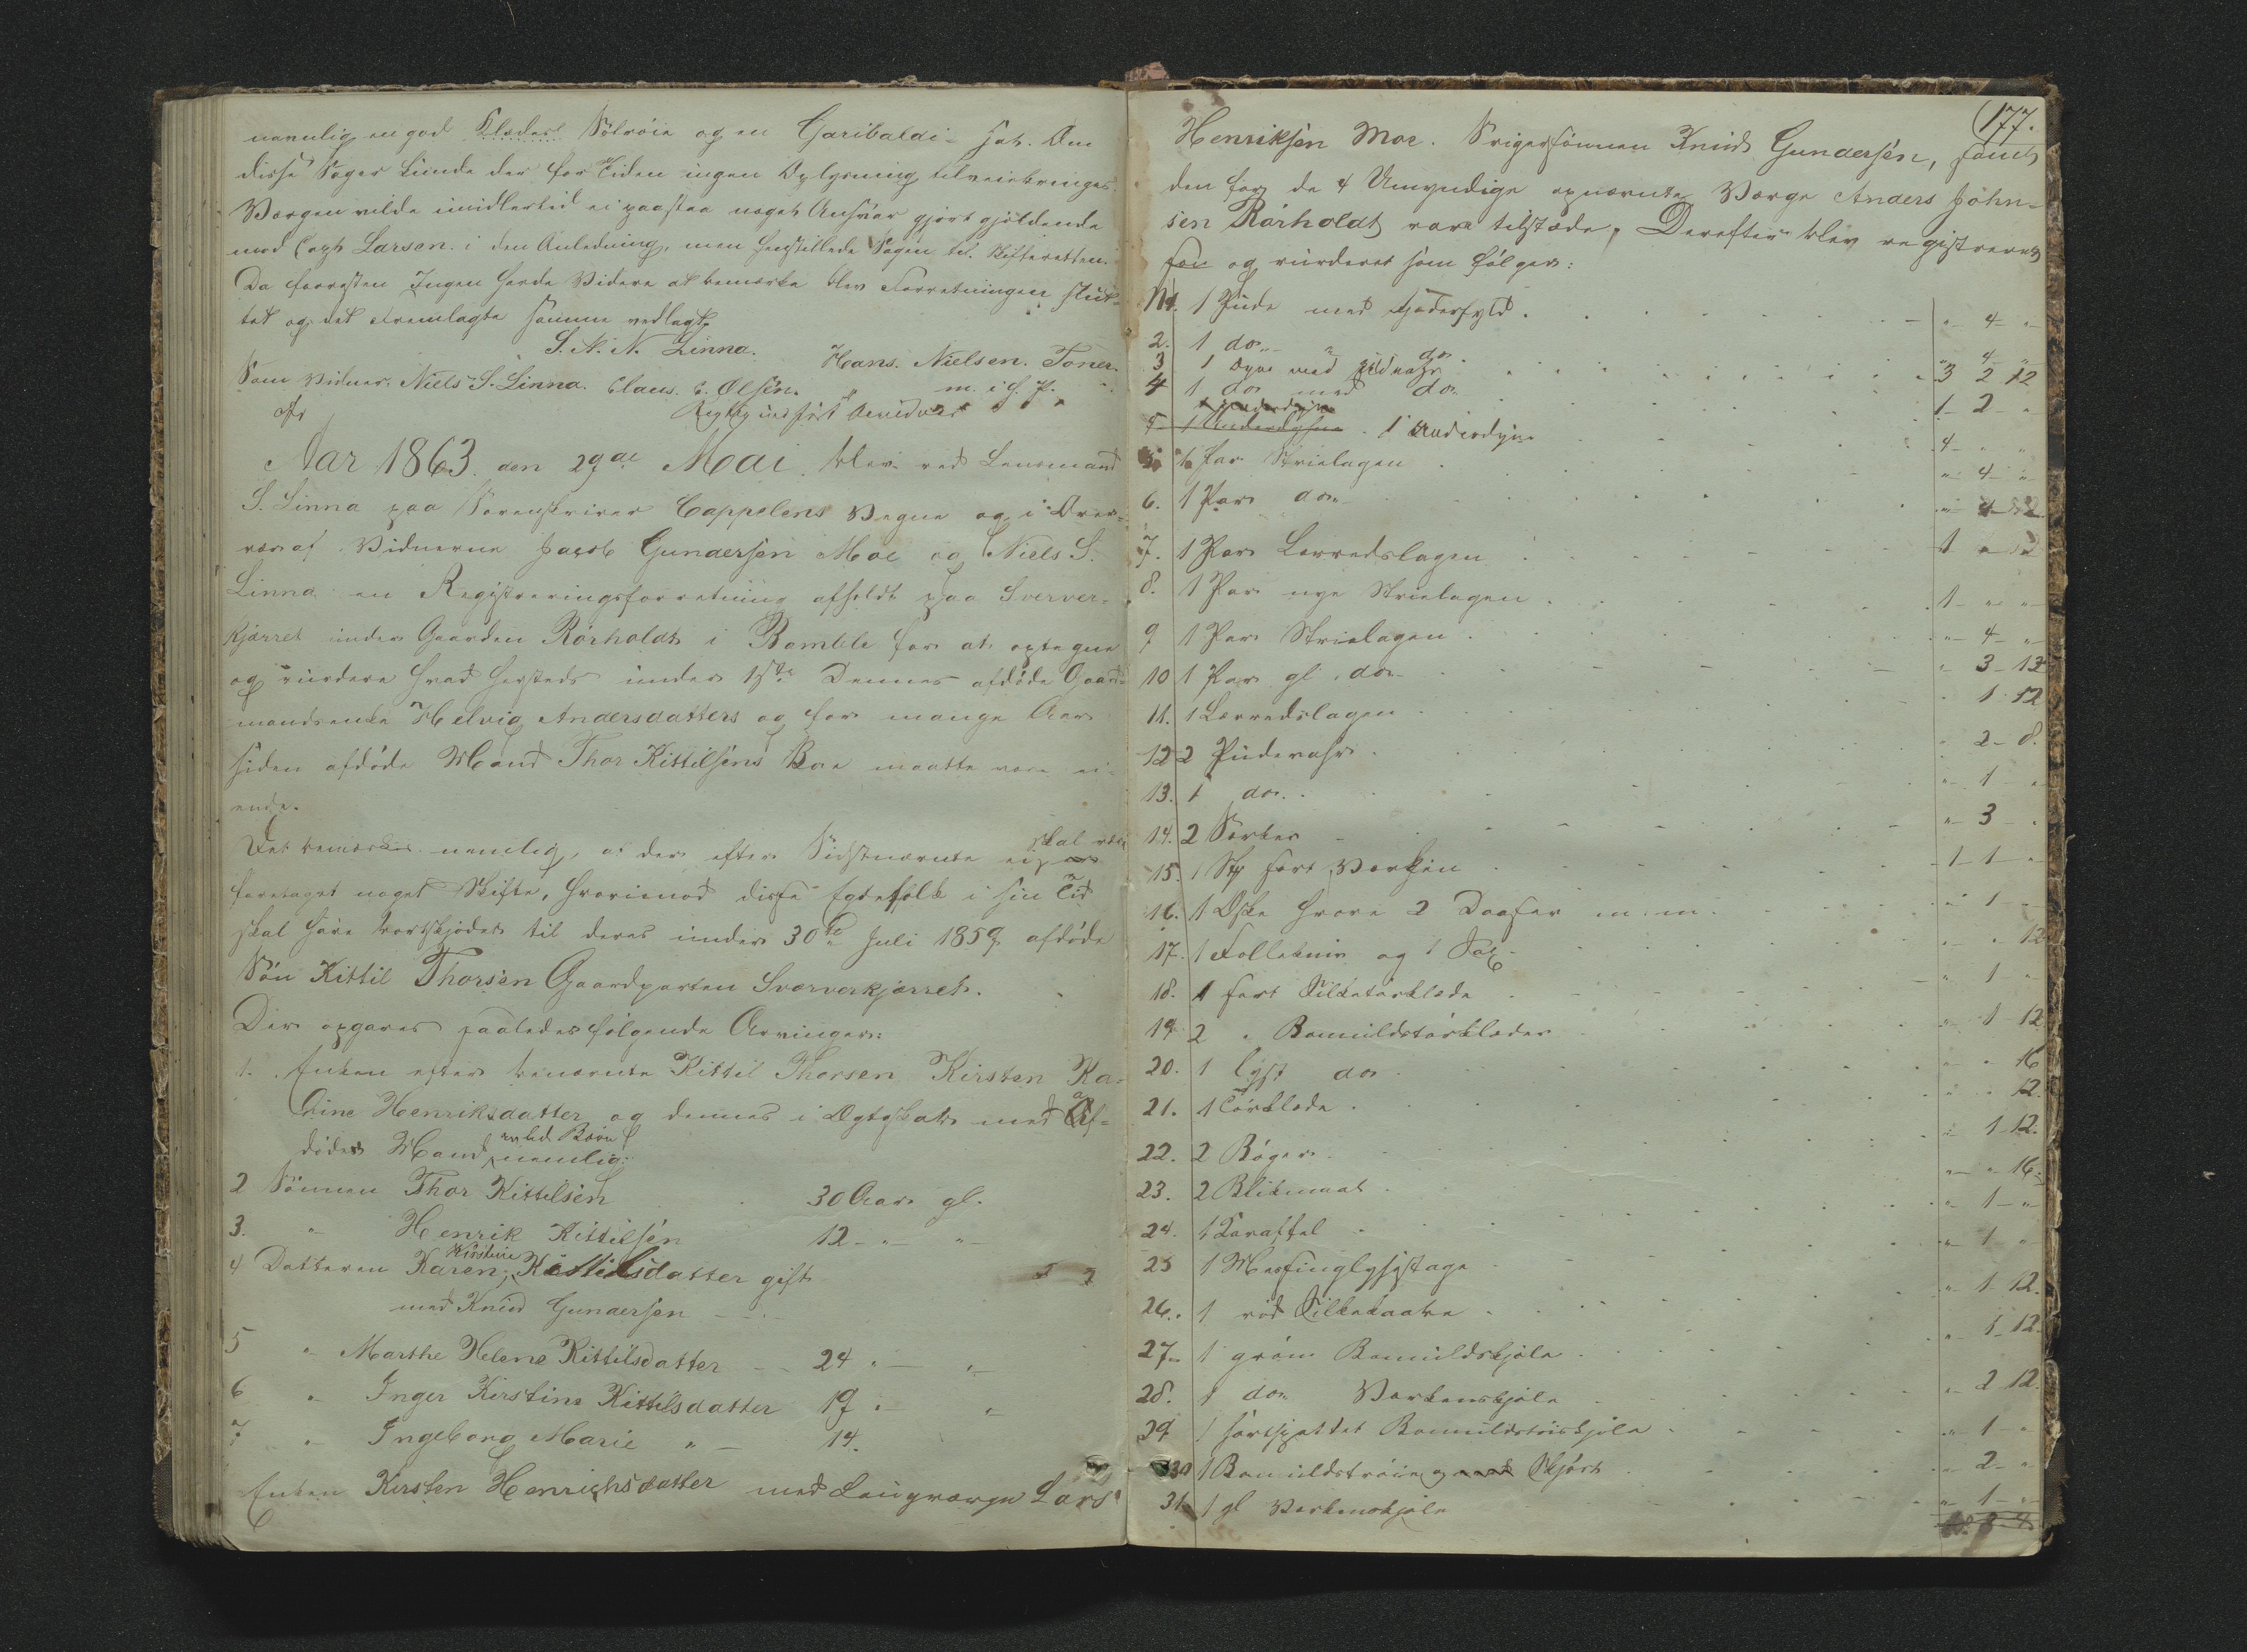 navnlig en god Klædes Vötröie og en Garibaldi- hat. Om
disse Sager kunde der for Tiden ingen Oplysning tilveiebringes.
Værgen vilde imidlertid ei paastaa noget Ansvar gjort gjöldende
mod Capt Larsen i den Anledning, men henstillede Sagen til Skifteretten.
Da forresten Ingen havde Videre at bemærke blev Forretningen slut-
tet og det Fremlagte samme vedlagt
S. N. N. Linna.
Hans. Nielsen. Toner.
Som Vidner: Niels S. Linna. Claus. C. Olsen. m. i h. P.
Aar 1863 den 29de Mai blev ved Lensmand
S. Linna paa Sorenskriver Cappelens Vegne og i Over-
vær af Vidnerne Jacob Gundersen Moe og Niels S.
Linna en Registreringsforretning afholdt paa Sverver-
kjærret under Gaarden Rörholdt i Bamble for at optegne
og vurdere hvad hersteds under 15de Dennes afdöde Gaard-
mandsenke Helvig Andersdatters og for mange Aar
siden afdöde Mand Thor Kittilsens Boe maatte være ei-
ende.
Det bemærkes nemlig, at der efter Sidstnævnte ei skal være
foretaget noget Skifte, hvorimod disse Egtefolk i sin Tid
skal have bortskjödet til deres under 30te Juli 1859 afdöde
Sön Kittil Thorsen Gaardparten Sververkjærret.
Der opgaves saaledes følgende Arvinger:
1. Enken efter benævnte Kittil Thorsen Kirsten Ka-
thine Henriksdatter og dennes i Ægteskab med Af-
dödes Mand avled Börn nemlig:
2 Sönnen Thor Kittilsen 30 Aar gl.
3. " Henrik Kittilsen 12 - " "
4 Datteren Karen Kirstine Kittilsdatter gift
med Knud Gundersen
5 " Marthe Helene Kittilsdatter - 24 " "
6 " Inger Kirstine Kittilsdatter 19 " "
7 " Ingeborg Marie " - 14.
Enken Kirsten Henrichsdatter med Laugværge Lars
177.
Henriksen Moe. Svigersönnen Knud Gundersen, samt
den for de 4 Umyndige opnævnte Værge Anders John-
sen Rörholdt vare tilstæde, Derefter blev registreret
og vurderet som følger:
No 1. 1 Pude med Fjederfyld . " 4 "
2. 1 do " do. " 4 "
3 1 Dyne med 3 2 12
4 1 do med do 1 2 "
5 1 Underdyne 1 Underdyne 4 " "
1 Par Strielagen " 4 "
6. 1 Par do
7. 1 Par Lerredslagen
8. 1 Par nye Strielagen 1 " "
9 1 Par Strielagen . " 4 "
10 1 Par gl. do " 3 12
11. 1 Lærredslagen 1 12
12 2 Pudevahr . " 2 8.
13. 1 do. " 1 "
14. 2 Særker " 3 "
15. 1 Stk sort Verken 1 1 "
16. 1 Æske hvore 2 Daaser m: m. " 1 "
17. 1 Follekniv og 1 Sax " " 12
18. 1 sort Silketörklæde " 1 "
19. 2 " Bomuldstörklæder " 1 12
20. 1 lyst do " " 16
21. 1 Törklæde . " " 12.
22. 2 Böger " 1 12.
23. 2 Blikmaal . " " 16
24. 1 Karaffel " 1 "
25 1 Messinglysestage " 1 "
26. 1 röd Silkekaabe . " 1 12.
27. 1 grön Bomuldskjole . " 1 12.
28. 1 do Verkenskjole " 2 12.
29 1 sortspettet Bomuldstöiskjole " 1 "
30 1 Bomuldströie og Skjört " 2 "
31. 1 gl Verkenskjole " 1 "